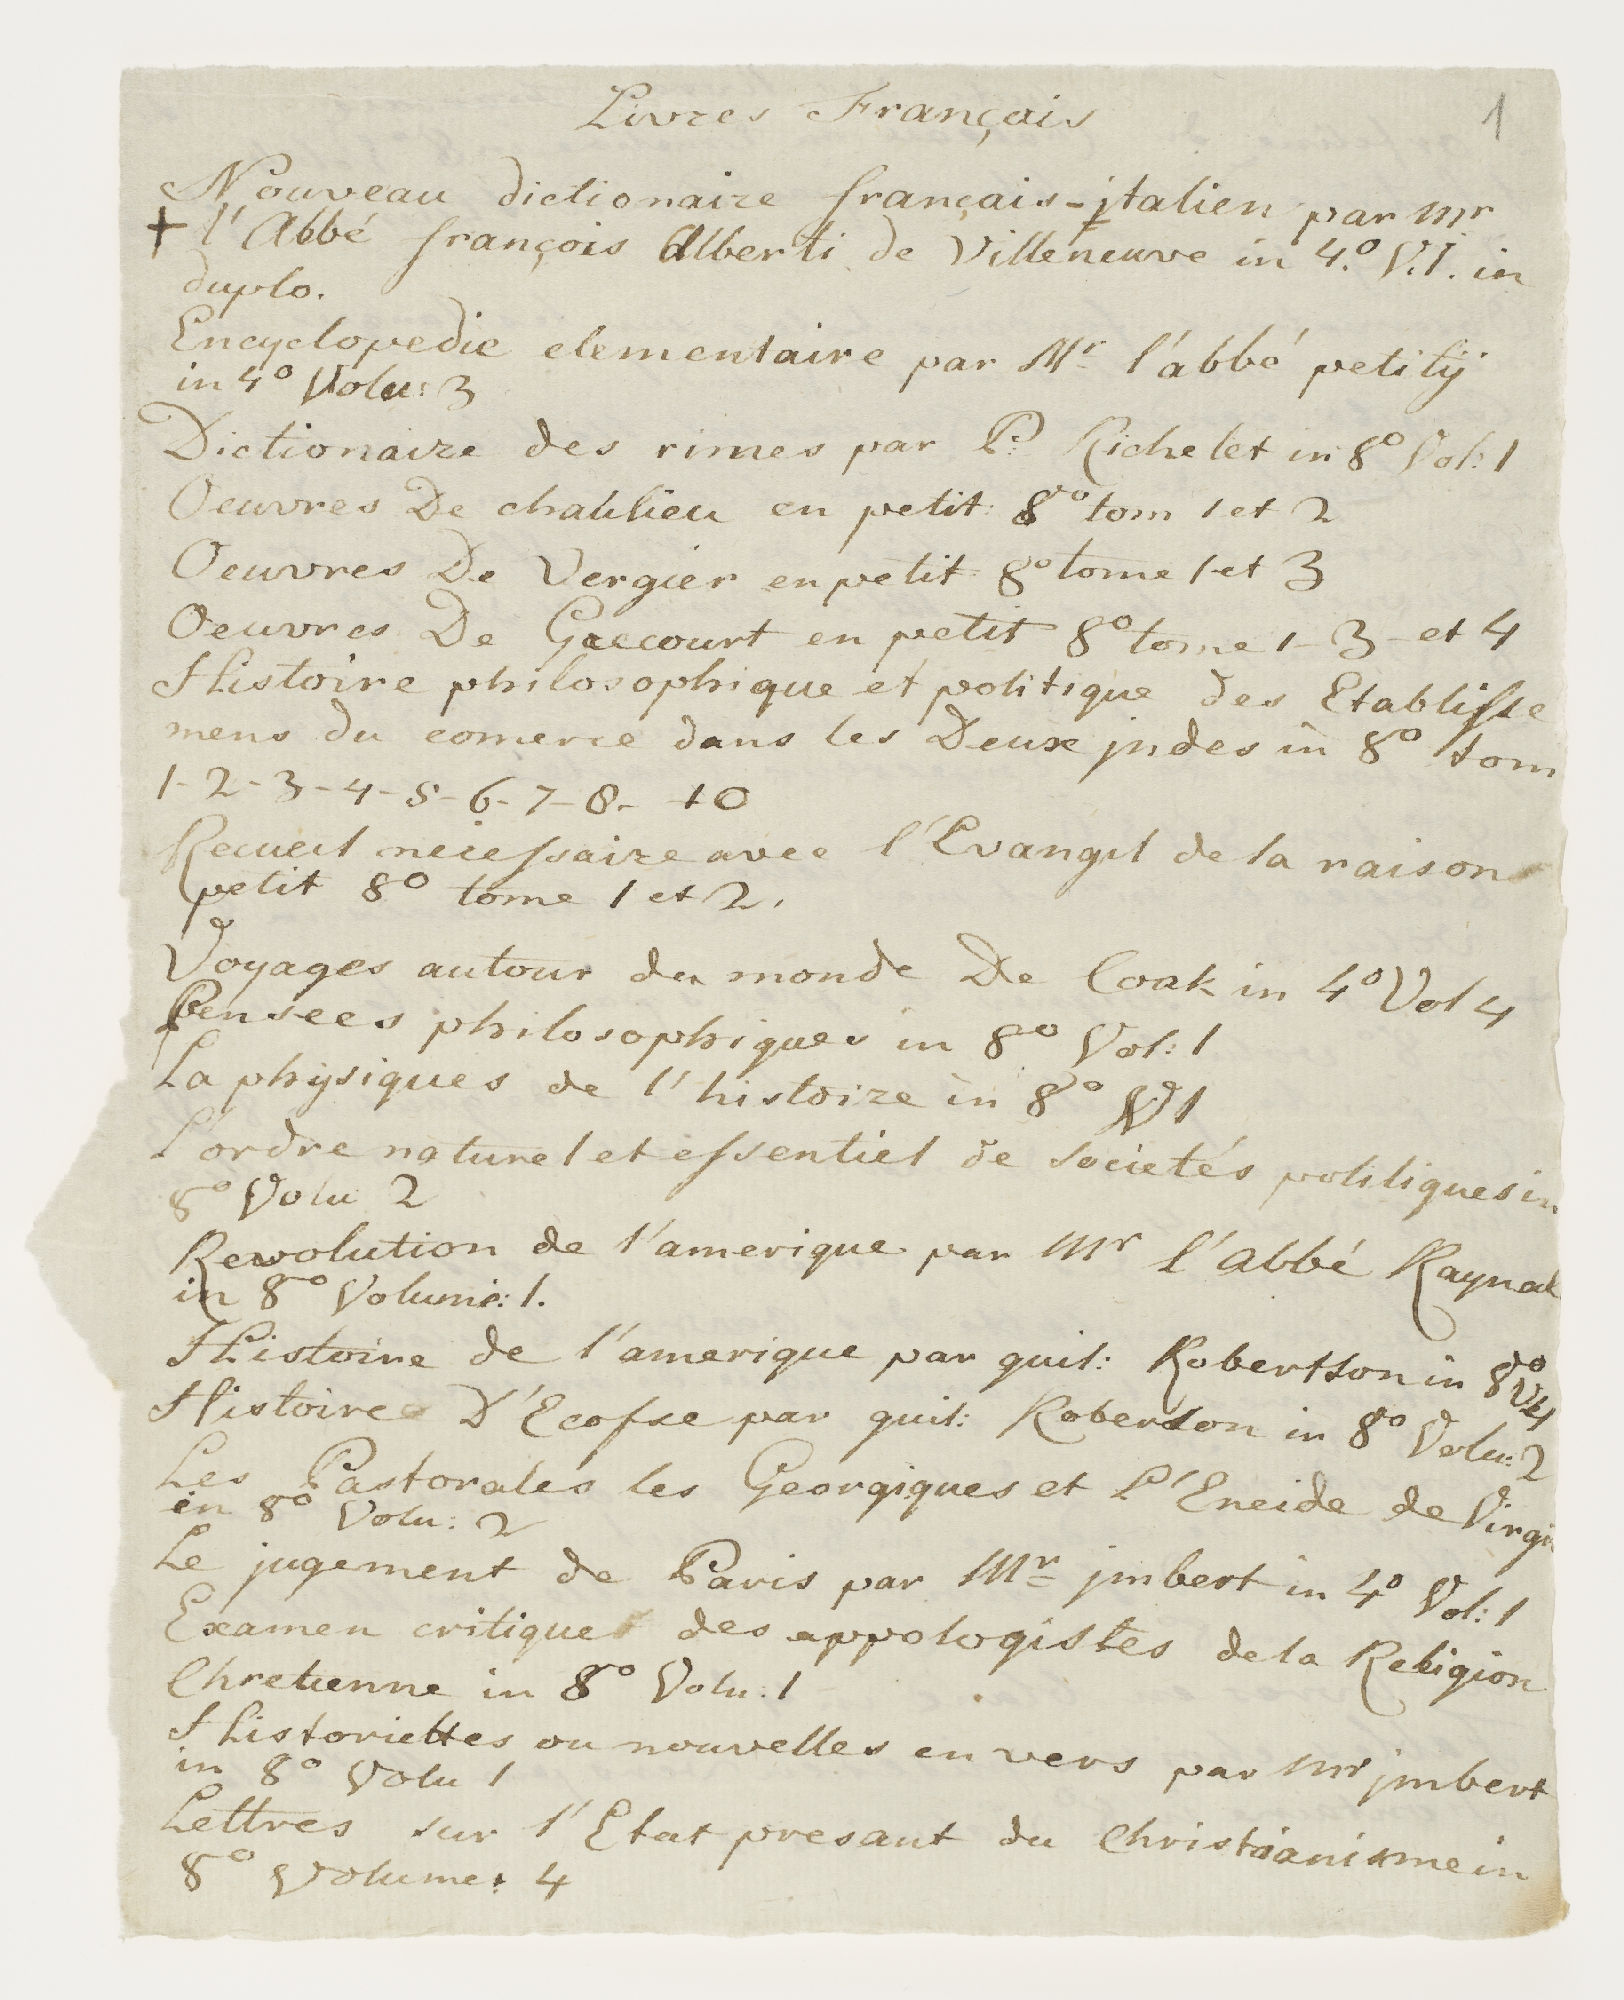 Livres Français
1
Nouveau dictionaire français-jtalien par mr
+ l'Abbé françois Alberti de Villeneuve in 4.º V.1. in
duplo.
Encyclopedie elementaire par Mr l'abbé petitÿ
in 4º Volu: 3
Dictionaire des rimes par P: Richelet in 8º Vol: 1
Oeuvres De chaulieu en petit 8vo tom 1 et 2
Oeuvres De Vergier en petit 8º tome 1 et 3
Oeuvres De Grecourt en petit 8º tome 1-3-et 4
Histoire philosophique et politique des Etablisse
mens du comerce dans les Deux jndes in 8º tom
1-2-3-4-5-6-7-8- 10
Recueil necessaire avec l'Evangil de la raison
petit 8º tome 1 et 2.
Voyages autour du monde De Coak in 4º Vol 4
Pensees philosophiques in 8º Vol: 1
La physiques de l'histoire in 8º V 1
L'ordre naturel et essentiel de societés politiques in
8º Volu 2
Revolution de l'amerique par Mr l'abbé Raynal
in 8º Volume: 1.
Histoire de l'amerique par guil: Robertson in 8º V4
Histoire D'Ecosse par guil: Robertson in 8º Volu: 2
Les Pastorales les Georgiques et L'Eneide de Virgi
in 8º Volu: 2
Le jugement de Paris par Mr jmbert in 4º Vol: 1
Examen critique des appologistes de la Religion
Chretienne in 8º Volu: 1
Historiettes ou nouvelles en vers par Mr jmbert
in 8º Volu 1
Lettres sur l'Etat presant du Christianisme in
8º Volume: 4